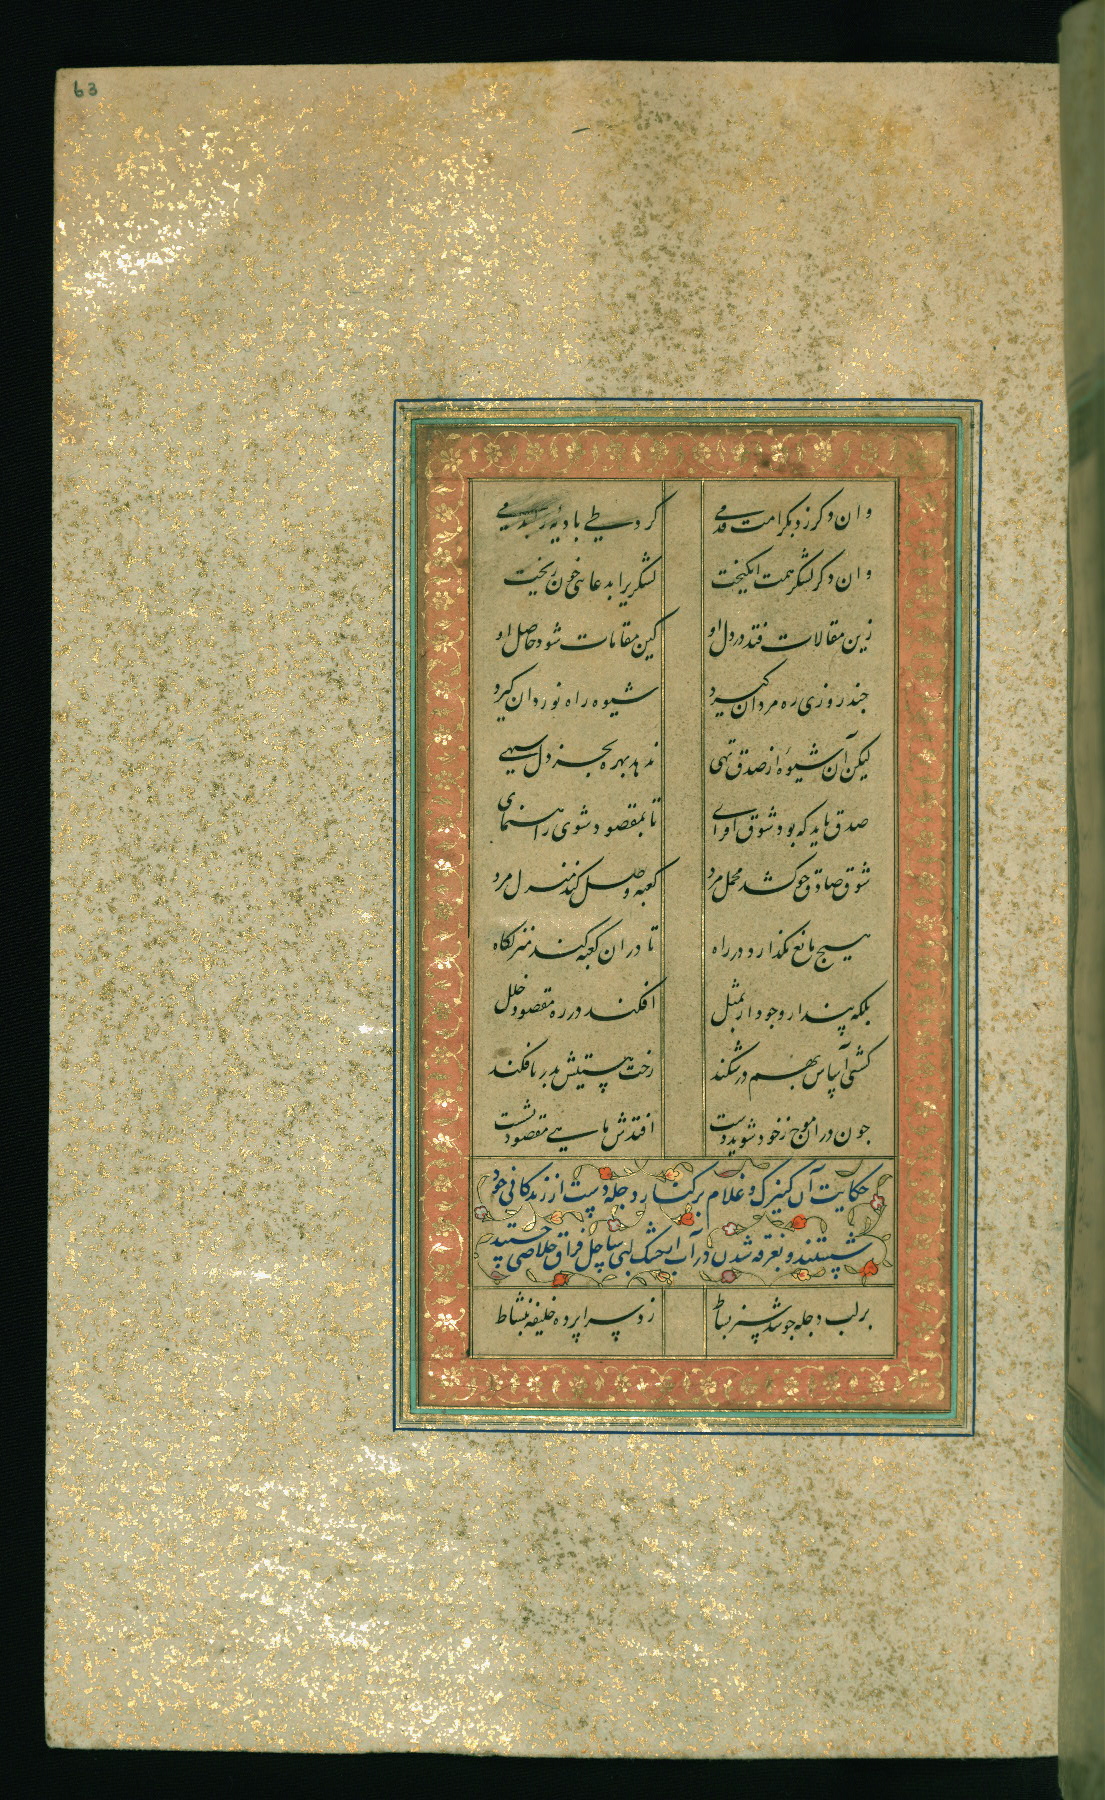 63
وان دکر زد بکرامت قدمی
کرد طی بادیهٔ
وان دکر لشکر همت انکیخت
لشکریرا بدعائی خون ریخت
زین مقالات فتد در دل او
کین مقامات شود حاصل او
جند روزی ره مردان کیرد
شیوه راه نوردان کیرد
لیکن آن شیوهٔ از صدق تهی
ندهد بهره بجز دل سیهی
صدق باید که بود شوق افزای
تا بمقصود شوی راهنمای
شوق صادق جو کشد محمل مرد
کعبه وصل کند منزل مرد
هیچ مانع نکذارد در راه
تا دران کعبه کند منزلکاه
بلکه پندار وجود ار بمثل
افکند در ره مقصود خلل
کشتی آساس بهم در شکند
رخت هستیش بدریا فکند
جون دران موج زخود شوید دست
افتدش ماهی مقصود بشست
حکایت آن کنیزک و غلام برکنار دجله دست از زندکانی خود
شستند و بغرقه شدن در آب از خشک لبی ساحل فراق خلاصی جستند
بر لب دجله جو شد پنبه بساط
زد سراپرده خلیفه بنشاط